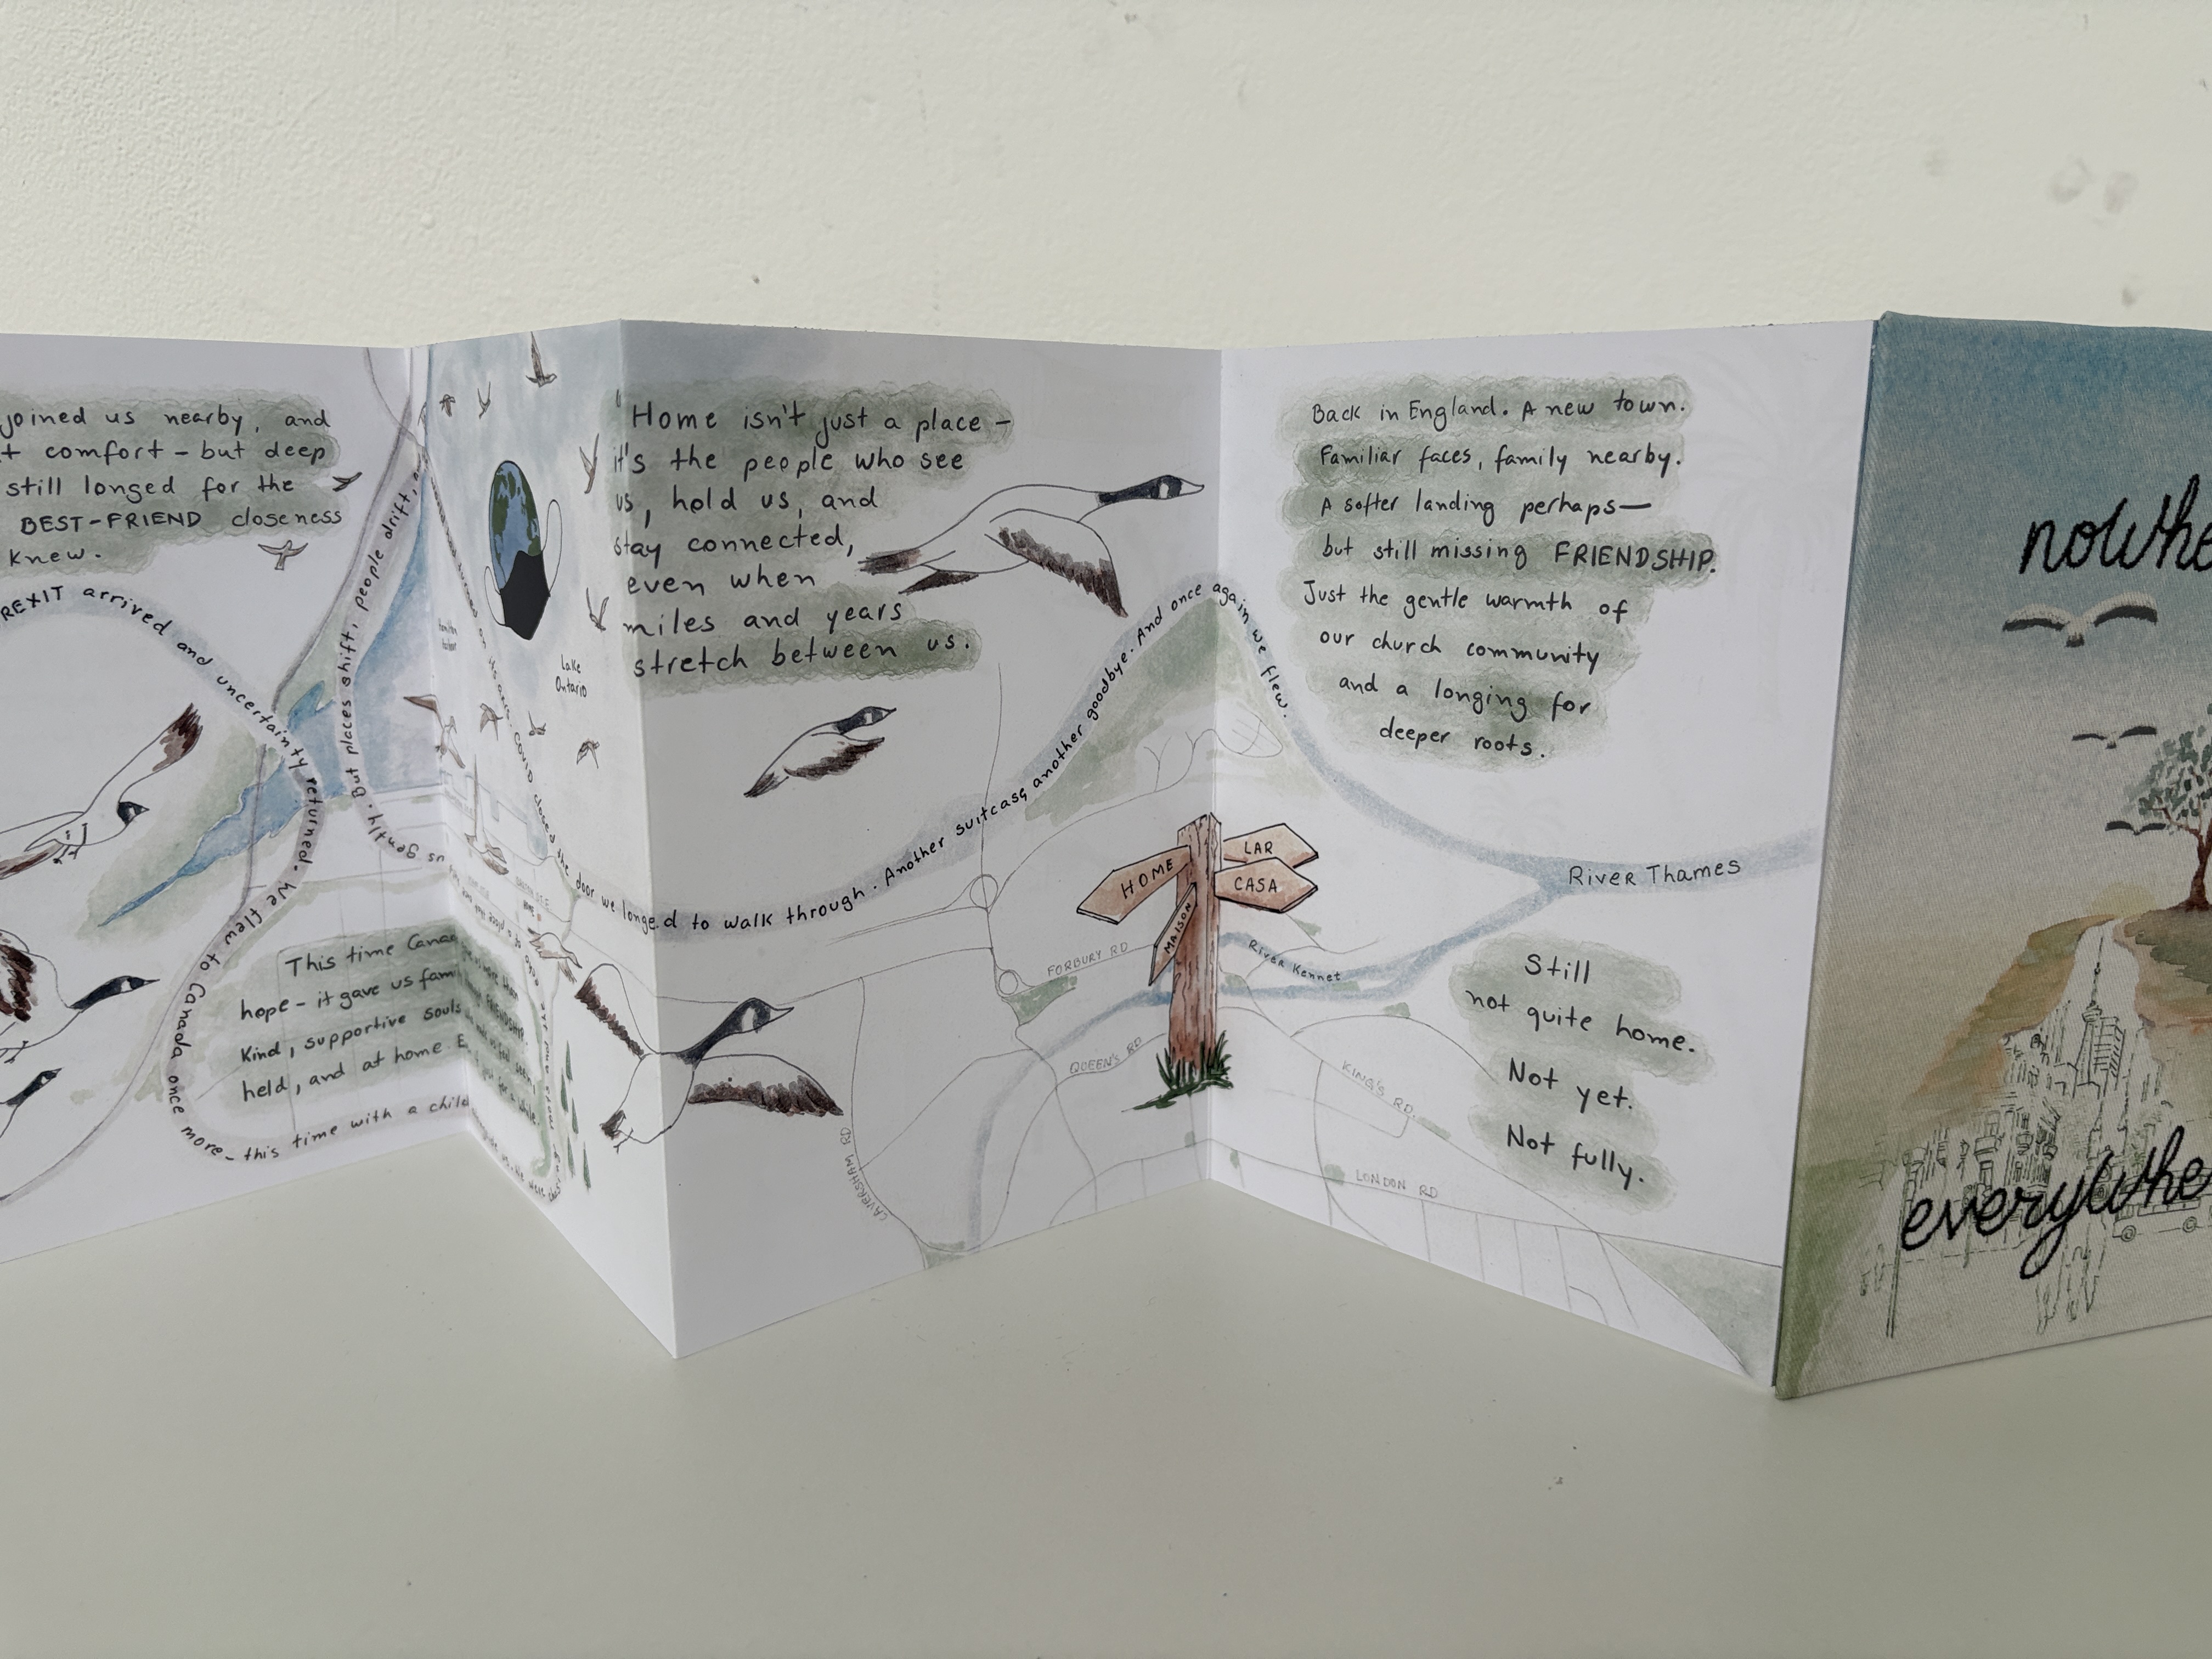 joined us nearby, and
comfort - but deep
still longed for the
BEST-FRIEND closeness
knew.
REXIT arrived and uncertainty returned. We flew to Canada once more - this time with a child
But places shift, people drift,
gently.
This time Canad
hope - it gave us fam
Kind, supportive souls
held, and at home. E
Lake
Ontario
COVID closed the door we longed to walk through. Another suitcase, another goodbye. And once again we flew.
Home isn't just a place -
it's the people who see
us, hold us, and
stay connected,
even when
miles and years
stretch between us.
Back in England. A new town.
Familiar faces, family nearby.
A softer landing perhaps—
but still missing FRIENDSHIP.
Just the gentle warmth of
our church community
and a longing for
deeper roots.
HOME
LAR
CASA
MAISON
RIVER THAMES
RIVER Kennet
FORBURY RD
QUEEN'S RD
KING'S RD.
LONDON RD
CAVERSHAM RD
Still
not quite home.
Not yet.
Not fully.
nowhe
everywhe